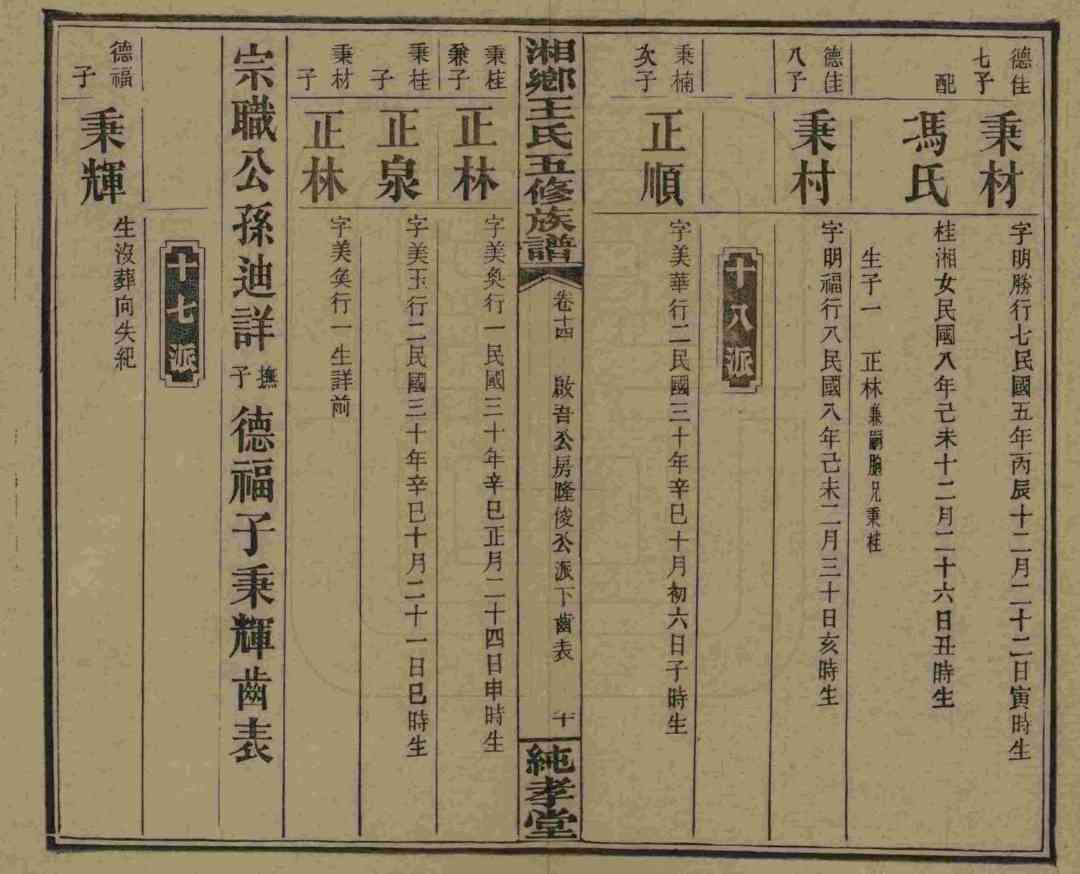 德佳七子 秉材 字明勝行七民國五年丙辰十二月二十二日寅時生
配 馮氏 桂湘女民國八年己未十二月二十六日丑時生
生子一 正林兼嗣胞兄秉桂
德佳八子 秉村 字明福行八民國八年己未二月三十日亥時生
十八派
秉楠次子 正順 字美華行二民國三十年辛巳十月初六日子時生
湘鄉王氏五修族譜 卷十四 啟吾公房隆俊公派下齒表 十 純孝堂
秉桂兼子 正林 字美奐行一民國三十年辛巳正月二十四日申時生
秉桂子 正泉 字美玉行二民國三十年辛巳十月二十一日巳時生
秉材子 正林 字美奐行一生詳前
宗職公孫迪詳撫子德福子秉輝齒表
十七派
德福子 秉輝 生沒葬向失紀